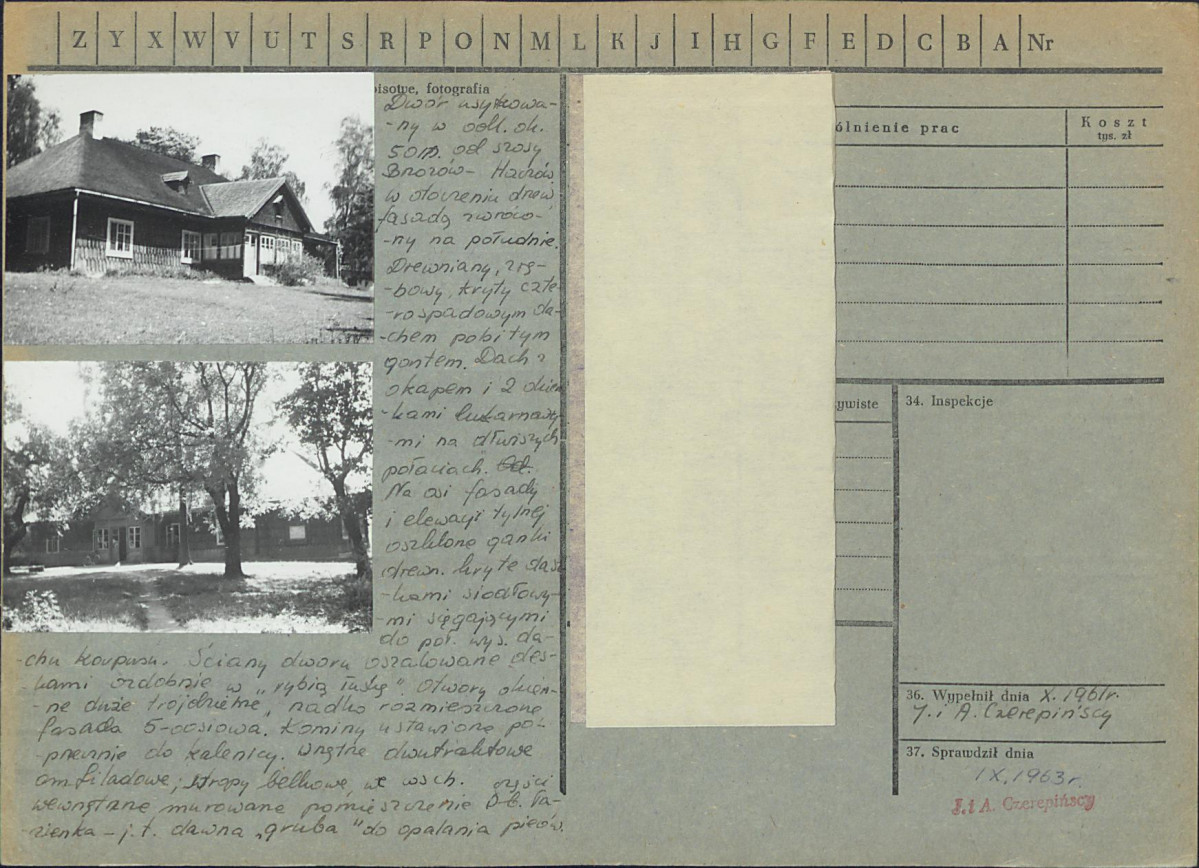 Z Y X W V U T S R P O N M L K J I H G F E D C B A Nr
isowe, fotografia
Dwór usytuowa-
-ny w odl. ok.
50 m. od szosy
Brozów - Haczów
w otoczeniu drzew
fasadą zwróco-
-ny na południe.
Drewniany, zrę-
-bowy, kryty czte-
-rospadowym da-
-chem pobitym
gontem. Dach z
okapem i 2 okien
-kami lukarnowy-
-mi na dłuższych
połaciach.
Na osi fasady
i elewacji tylnej
oszklone ganki
drewn. kryte dasz
-kami siodłowy-
-mi sięgającymi
do poł. wys. da-
-chu korpusu. Ściany dworu oszalowane des-
-kami ozdobnie w "rybią łuskę". Otwory okien-
-ne duże trójdzielne, rzadko rozmieszczone
fasada 5-osiowa. Kominy ustawione po-
-przecznie do kalenicy. Wnętrze dwutraktowe
amfiladowe; stropy belkowe, we wsch. części
wewnętrzne murowane pomieszczenie b. ła-
-zienka - j.t. dawna "gruba" do opalania pieców.
ólnienie prac
Koszt
tys. zł
ywiste
34. Inspekcje
36. Wypełnił dnia X. 1961r.
J. i A. Czerepińscy
37. Sprawdził dnia
IX. 1963 r.
J. i A. Czerepińscy